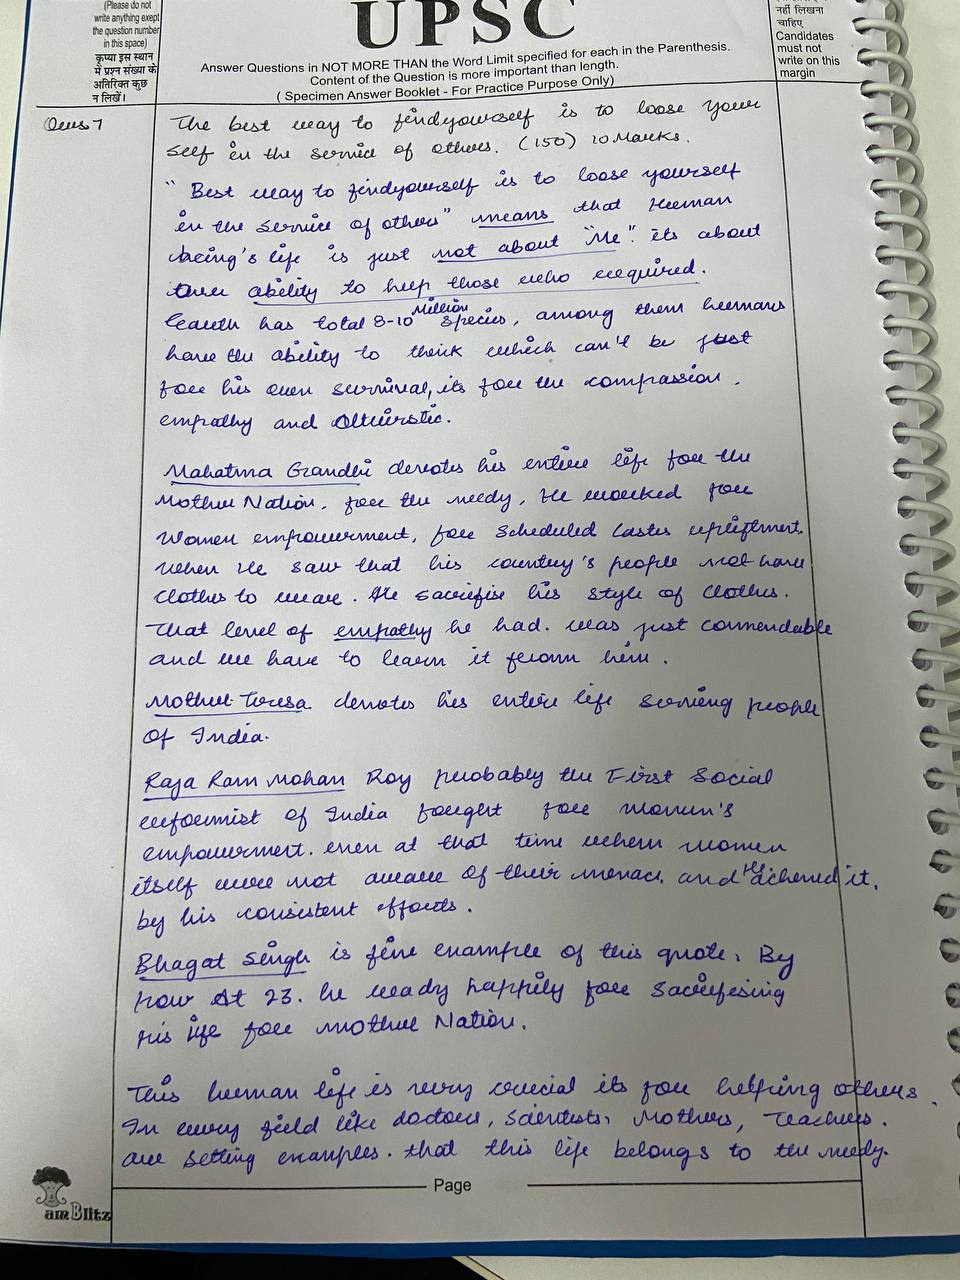 (Please do not
write anything exept
the question number
in this space)
कृप्या इस स्थान
में प्रश्न संख्या के
अतिरिक्त कुछ
न लिखें।
UPSC
Answer Questions in NOT MORE THAN the Word Limit specified for each in the Parenthesis.
Content of the Question is more important than length.
( Specimen Answer Booklet - For Practice Purpose Only)
नहीं लिखना
चाहिए
Candidates
must not
write on this
margin
Ques 7
The best way to find yourself is to loose your
self in the service of others. (150) 10 Marks.
"Best way to find yourself is to loose yourself
in the service of others" means that Human
being's life is just not about "Me". its about
our ability to help those who required.
Earth has total 8-10 Million species, among them humans
have the ability to think which can't be just
for his own survival, its for the compassion.
empathy and Altruistic.
Mahatma Gandhi devotes his entire life for the
Mother Nation, for the needy, He worked for
Women empowerment, for Scheduled Castes upliftment.
when He saw that his country's people not have
clothes to wear. He sacrifise his style of clothes.
That level of empathy he had. was just commendable
and we have to learn it from him.
Mother Teresa devotes his entire life serving people
of India.
Raja Ram Mohan Roy probably the First Social
reformist of India fought for women's
empowerment. even at that time when women
itself were not aware of their menace. and He achieved it.
by his consistent efforts.
Bhagat Singh is fine example of this quote, By
how At 23. he ready happily for sacrifising
his life for Mother Nation.
This human life is very crucial its for helping others.
In every field like doctors, scientists, Mothers, Teachers.
are setting examples. that this life belongs to the needy.
Page
am Blitz